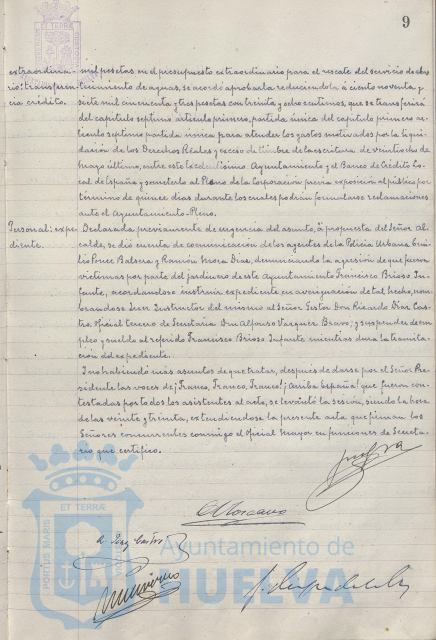 9
extraordina-
rio: transferen-
cia crédito.
mil pesetas, en el presupuesto extraordinario para el rescate del servicio de abas-
tecimiento de aguas, se acordó aprobarla reduciéndola a ciento noventa y
siete mil cincuenta y tres pesetas con treinta y ocho céntimos, que se transferirá
del capítulo septimo artículo primero, partida única del capítulo primero ar-
tículo septimo partida única para atender los gastos motivados por la liqui-
dación de los Derechos Reales y exceso de timbre de la escritura de veintiocho de
marzo último, entre este Excelentísimo Ayuntamiento y el Banco de Crédito Lo-
cal de España y someterlo al Pleno de la Corporación previa exposición al público por
término de quince días durante los cuales podrán formularse reclamaciones
ante el Ayuntamiento-Pleno.
Personal: expe-
diente.
Declarada previamente de urgencia del asunto, a propuesta del Señor Al-
calde, se dió cuenta de comunicación de los agentes de la Policía Urbana Emi-
lio Ponce Balsera y Ramón Mora Díaz, denunciando la agresión de que fueron
víctimas por parte del jardinero de este Ayuntamiento Francisco Brioso In-
fante, acordándose instruir expediente en averiguación de tal hecho, nom-
brándose Juez Instructor del mismo al Señor Gestor Don Ricardo Díaz Cas-
tro, Oficial tercero de Secretaría Don Alfonso Vazquez Bravo; y suspender de em-
pleo y sueldo al referido Francisco Brioso Infante mientras dura la tramita-
ción del expediente.
I no habiendo más asuntos de que tratar, después de darse por el Señor Pre-
sidente las voces de ¡Franco, Franco, Franco! ¡Arriba España! que fueron con-
testadas por todos los asistentes al acto, se levantó la sesión, siendo la hora
de las veinte y treinta, extendiéndose la presente acta que firman los
Señores concurrentes conmigo el Oficial Mayor en funciones de Secreta-
rio que certifico.
PORTUS MARIS
ET TERRÆ
Ayuntamiento de
HUELVA